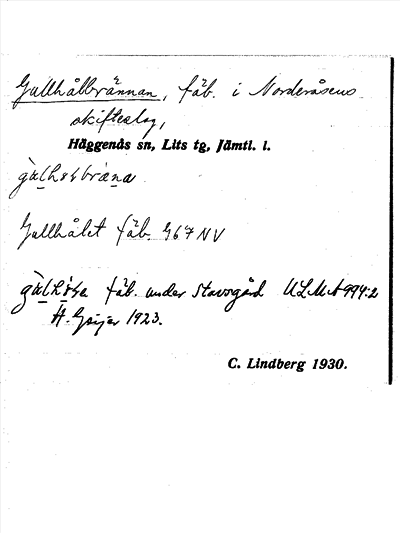 Gullhålbrännan, fäb. i Norderåsens
skifteslag,
Häggenås sn, Lits tg, Jämtl. l.
Gullhålet fäb. 967 NV
fäb. under Stavsgård ULMA 994:2
H. Geijer 1923.
C. Lindberg 1930.